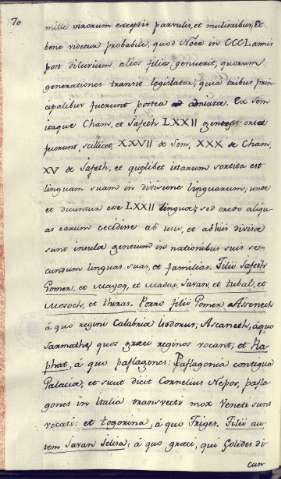 70
millia virorum exceptis parvulis, et mulieribus, Et
bene videtur probabile, quod Noëe in CCCL annis
post diluvium alios filios, genuerit, quorum
generationes transiit legislator, quia tribus prin
cipalibus fuerunt postea adniata. Ex Sem
itaque Cham, et Jafeth LXXII orta
fuerunt, scilicet, XXVII de Sem, XXX de Cham,
XV de Jafeth, et quælibet istarum sortita est
linguam suam in divisione linguarum, unde
et dicimus esse LXXII linguas, sed credo aliqu
as earum cecidisse ab usu, et ab his divisæ
sunt insulæ gentium in nationibus suis se
cundum linguas suas, et familias. Filii Jafeth
Gomer, et Magog, et Madai, Javan et tubal, et
Mesoch, et thiras. Porro filii Gomer Assenech
à quo regini Calabria Isdorus, Ascaneth, à quo
Sarmathæ quos græci reginos vocant, et Ra
phat, à quo paflagones. Paflagonia contigua
Palacia, et sicut dicit Cornelius Nepos, pafla
gones in Italia transvecti mox Veneti sunt
vocati: et togorma, à quo Friges. Filii au
tem Javan Selisa, à quo græci, qui Eolides di
cun